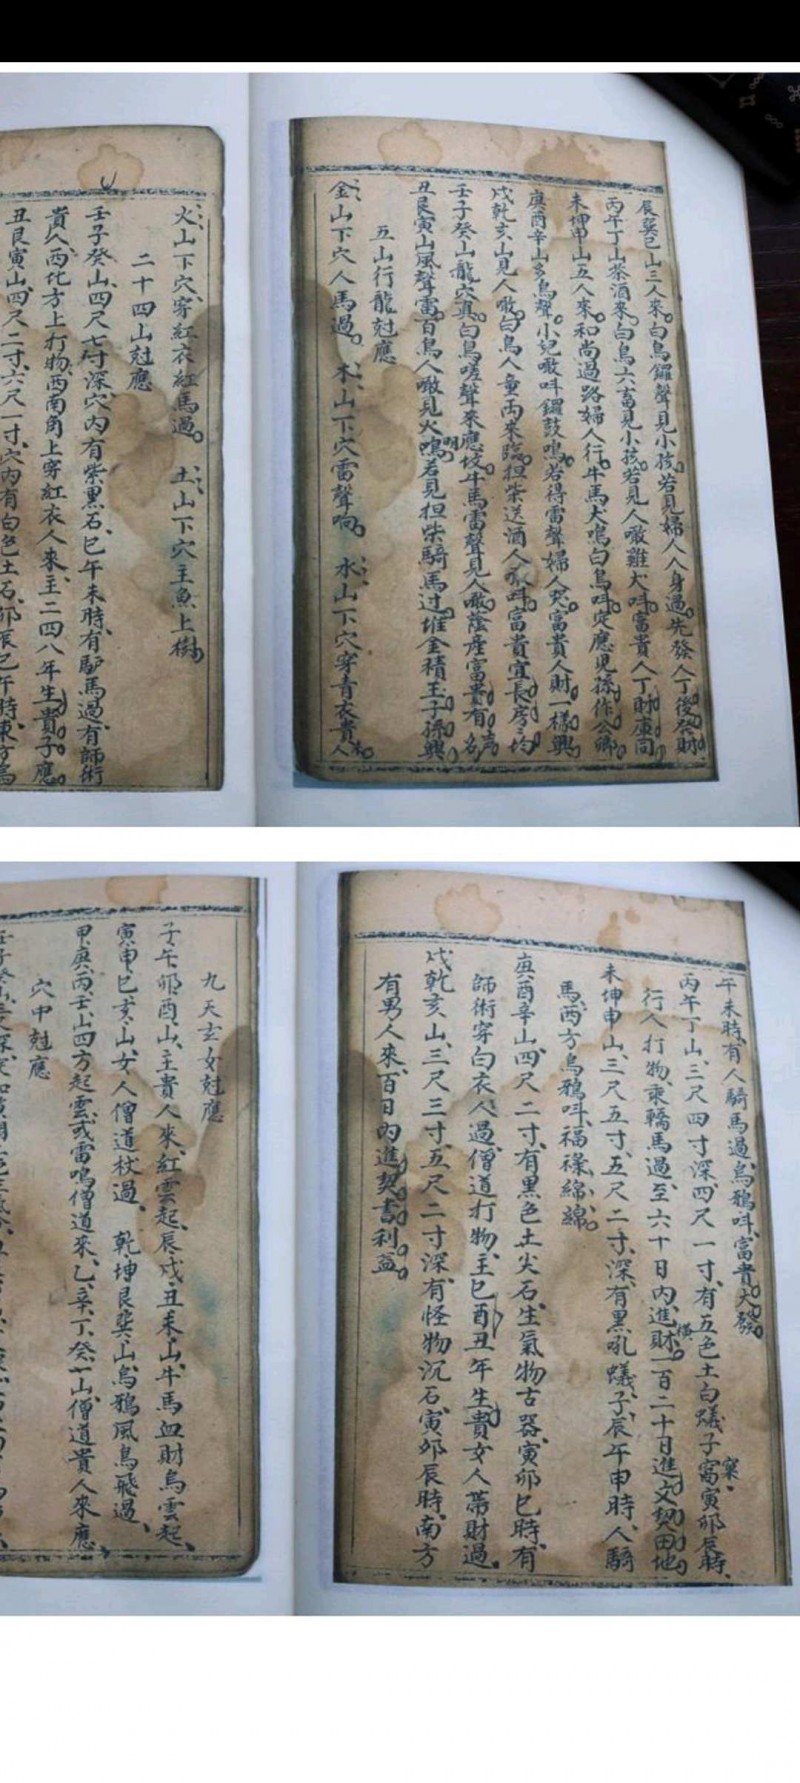 辰巽巳山三人來白鳥鑼聲見小孩若見婦人人身過先發人丁後發財
丙午丁山茶酒來白鳥六畜見小孩若見人噉雞犬呌富貴人丁財庫同
未坤申山五人來和尚過路婦人行牛馬犬鳴白鳥呌定應兒孫作公卿
庚酉辛山多鳥聲小兒噉呌鑼鼓鳴若得雷聲婦人哭富貴人財一樣興
戌乾亥山見人噉白鳥人童両來臨担柴送酒人呌富貴宜長房房均
壬子癸山龍穴真白鳥嗟聲來應坟牛馬雷聲見人噉蔭産富貴有名声
丑艮寅山風聲雷百鳥人噉見火鳴若見担柴騎馬过堆金積玉子孫興
五山行龍尅應
金山下穴人馬過、木山下穴雷聲响、水山下穴穿青衣貴人來
火山下穴穿紅衣紅馬過、土山下穴主魚上樹
二十四山尅應
壬子癸山四尺七寸深穴內有紫黑石、巳午未時有馿馬過、有師術
貴人、西北方上打物、西南角上穿紅衣人來、主二四八年生貴子應
丑艮寅山四尺二寸、六尺一寸、穴內有白色土石、卯辰巳午時、東方烏
午未時、有人騎馬過、烏鴉呌、富貴大發
丙午丁山、三尺四寸深、四尺一寸、有五色土白蟻子窩窠、寅卯辰時、
行人打物、乘轎馬過、至六十日內、進橫財、一百二十日進文契田地
未坤申山、三尺五寸、五尺二寸、深有黑吼蟻、子辰午申時、人騎
馬、西方烏鴉呌、福祿綿綿
庚酉辛山四尺二寸、有黑色土尖石、生氣物古器、寅卯巳時、有
師術穿白衣人過、僧道打物、主巳酉丑年生貴女人帶財過
戌乾亥山、三尺三寸、五尺二寸深、有怪物沉石、寅夘辰時、南方
有男人來、百日內進契書利益
九天玄女尅應
子午卯酉山、主貴人來、紅雲起、辰戌丑未山、牛馬血財烏雲起、
寅申巳亥山、女人僧道杖過、乾坤艮巽山、烏鴉風鳥飛過、
甲庚丙壬山四方起雲、或雷鳴僧道來、乙辛丁癸山、僧道貴人來應
穴中尅應